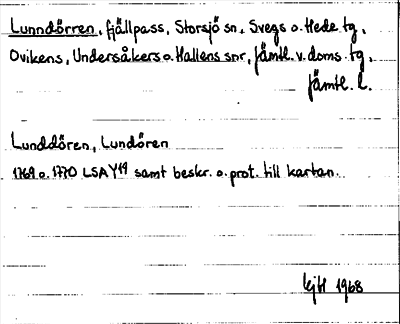 Lunndörren, fjällpass, Storsjö sn, Svegs o. Hede tg,
Ovikens, Undersåkers o. Hallens snr, Jämtl. v. doms. tg,
Jämtl. l.
Lunddören, Lundören
1769 o. 1770 LSA Y19 samt beskr. o. prot. till kartan.
1968